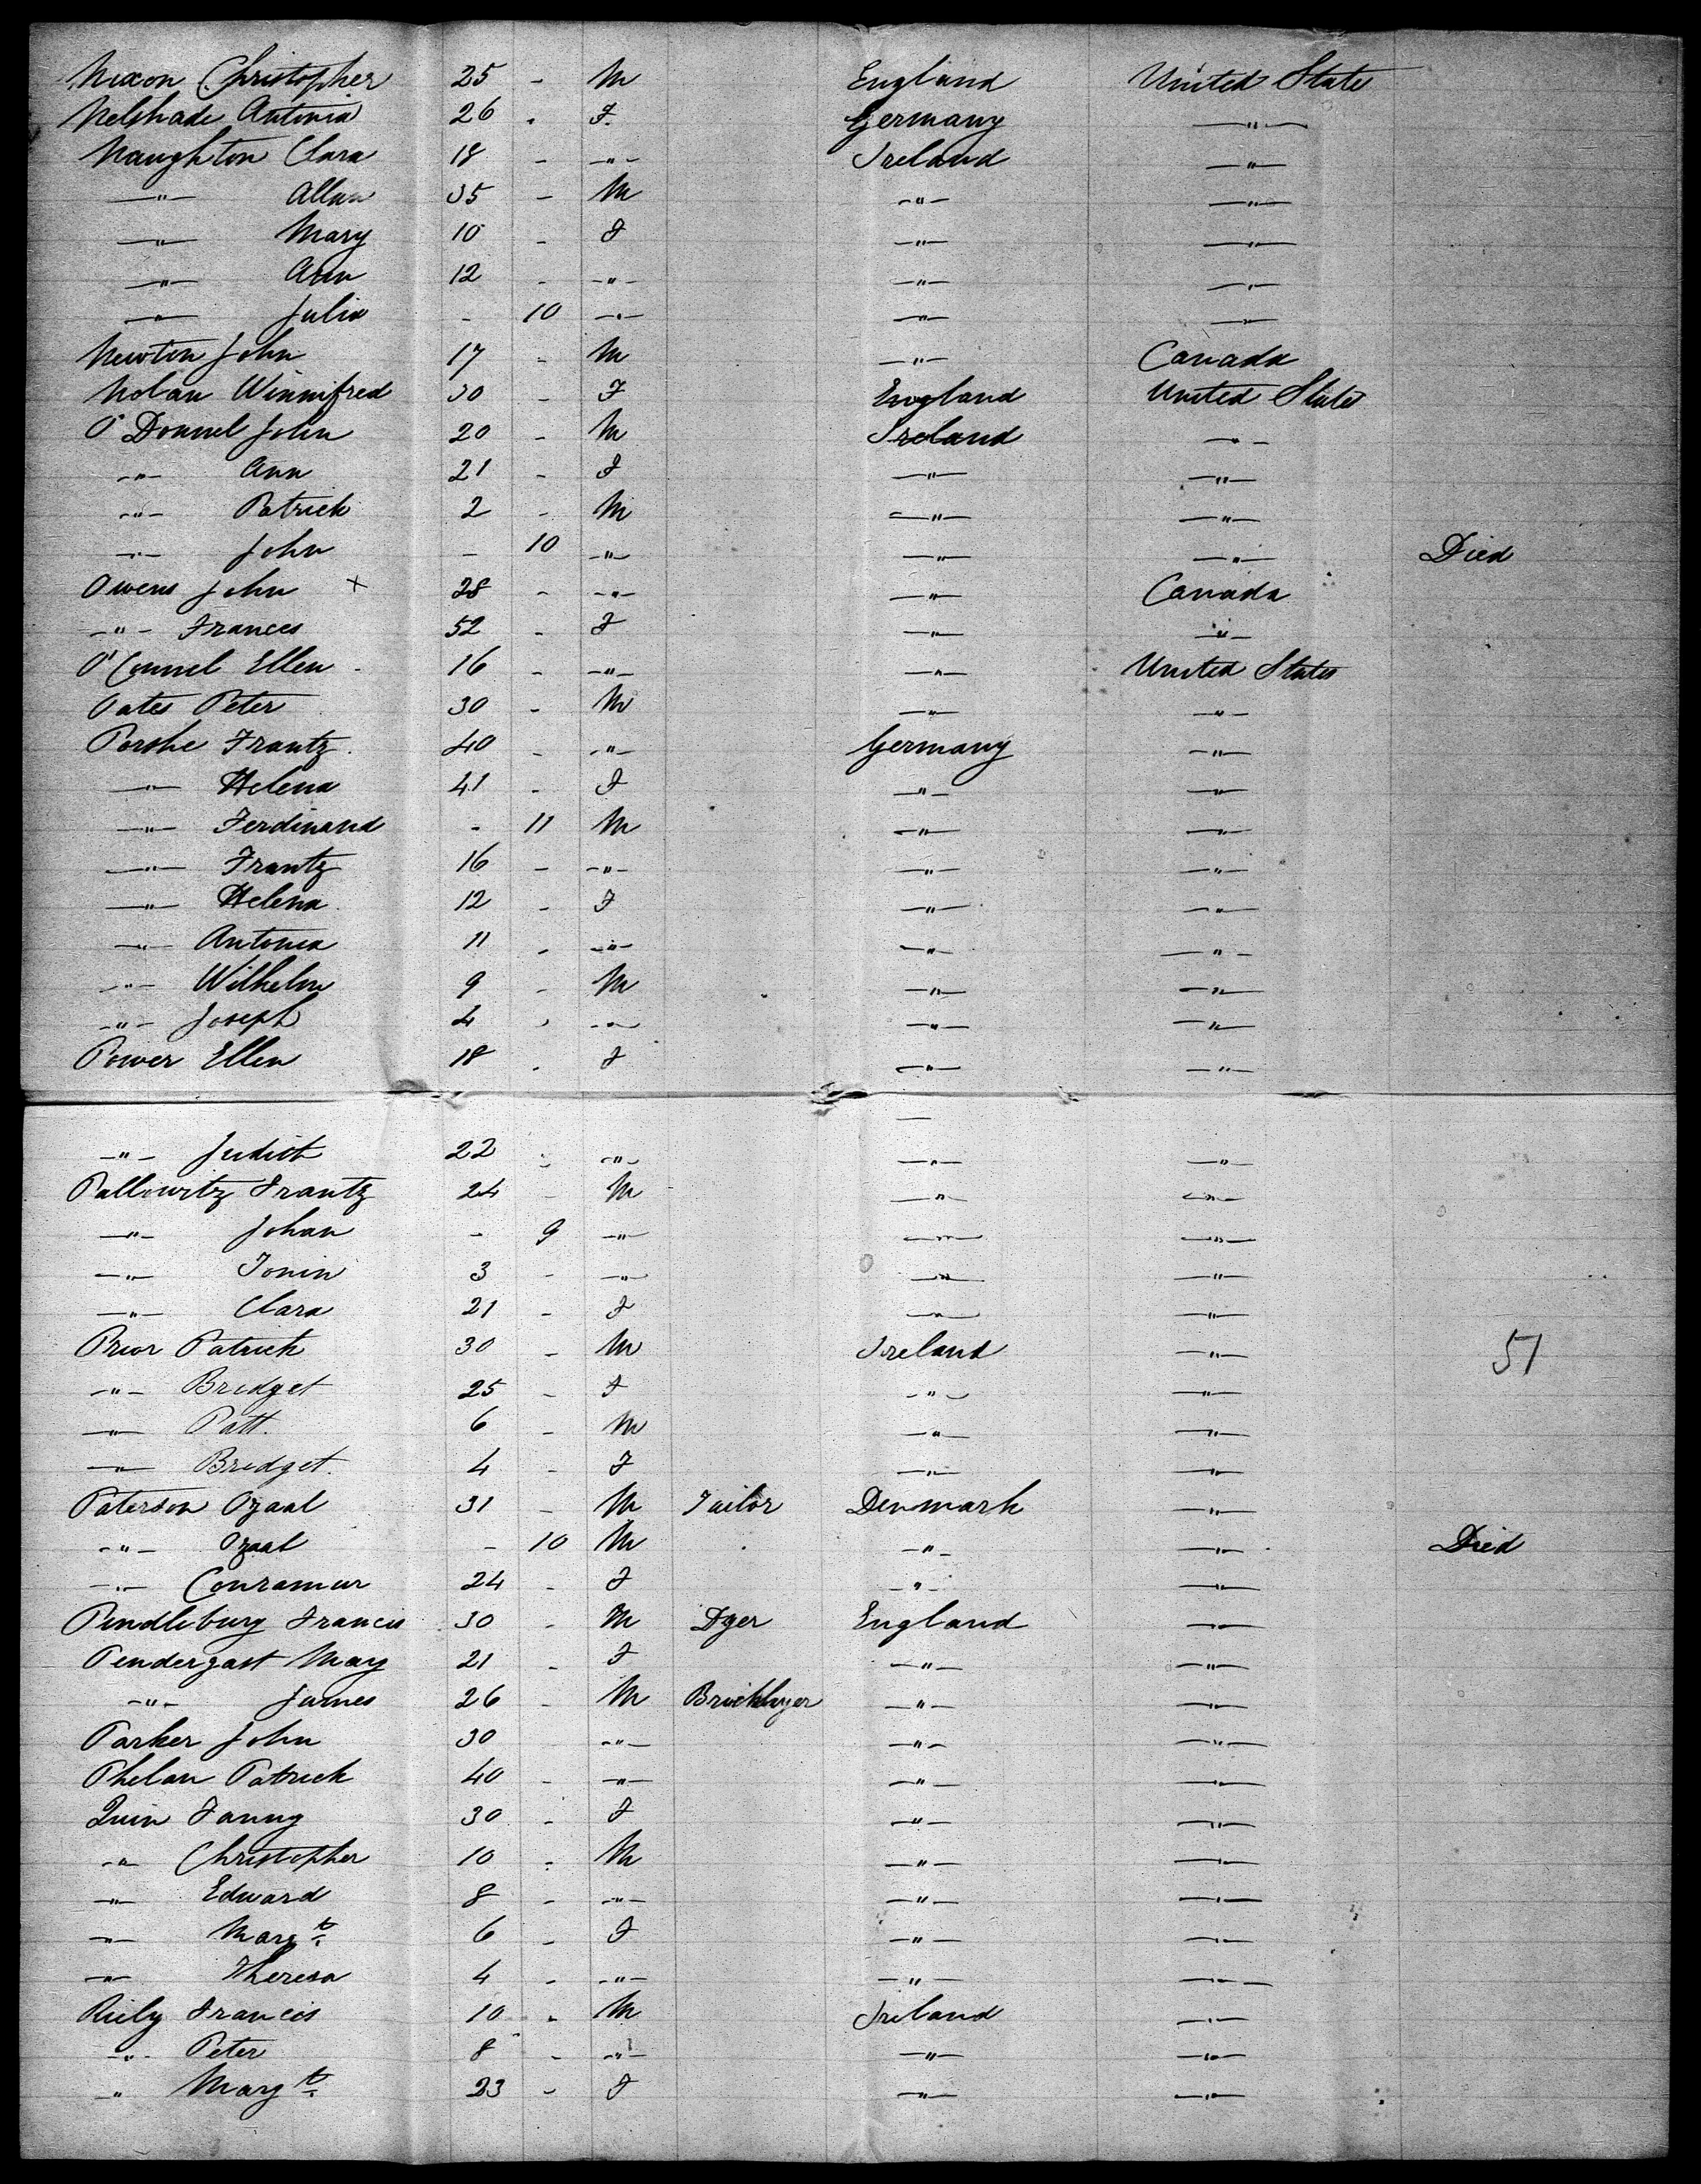 Nixon Christopher 25 - M England United State
Nelshade Antonia 26 - F. Germany —"—
Naughton Clara 18 - —"— Ireland —"—
—"— Allan 35 - M —"— —"—
—"— Mary 10 - F —"— —"—
—"— Ann 12 - —"— —"— —"—
—"— Julia - 10 —"— —"— —"—
Newton John 17 - M —"— Canada
Nolan Winnifred 30 - F England United States
O'Donnel John 20 - M Ireland —"—
—"— Ann 21 - F —"— —"—
—"— Patrick 2 - M —"— —"—
—"— John - 10 —"— —"— —"— Died
Owens John x 28 - —"— —"— Canada
—"— Frances 52 - F —"— —"—
O'Connel Ellen 16 - —"— —"— United States
Oates Peter 30 - M —"— —"—
Porshe Frantz 40 - —"— Germany —"—
—"— Helena 41 - F —"— —"—
—"— Ferdinand - 11 M —"— —"—
—"— Frantz 16 - —"— —"— —"—
—"— Helena 12 - F —"— —"—
—"— Antonia 11 - —"— —"— —"—
—"— Wilhelm 9 - M —"— —"—
—"— Joseph 4 - —"— —"— —"—
Power Ellen 18 - F —"— —"—
—"— Judith 22 - —"— —"— —"—
Pallowitz Frantz 24 - M —"— —"—
—"— Johan - 9 —"— —"— —"—
—"— 3 - —"— —"— —"—
—"— Clara 21 - F —"— —"—
Prior Patrick 30 - M Ireland —"— 51
—"— Bridget 25 - F —"— —"—
—"— Patt. 6 - M —"— —"—
—"— Bridget. 4 - F —"— —"—
Paterson Ozaal 31 - M Tailor Denmark —"—
—"— Ozaal - 10 M —"— —"— Died
—"— 24 - F —"— —"—
Pendlebury Francis 30 - M Dyer England —"—
Pendergast Mary 21 - F —"— —"—
—"— James 26 - M Bricklayer —"— —"—
Parker John 30 —"— —"— —"—
Phelan Patrick 40 - —"— —"— —"—
Quin Fanny 30 - F —"— —"—
—"— Christopher 10 - M —"— —"—
—"— Edward 8 - —"— —"— —"—
—"— Margt. 6 - F —"— —"—
—"— Theresa 4 - —"— —"— —"—
Riely Francis 10 - M Ireland —"—
—"— Peter 8 - —"— —"— —"—
—"— Margt. 23 - F —"— —"—